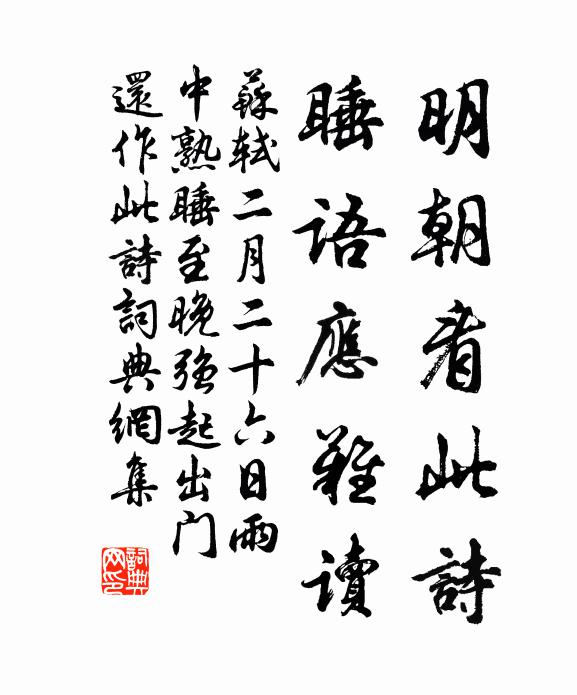 明朝看此詩
睡語應難讀
蘇軾二月二十六日雨
中熟睡至晚強起出门
還作此詩詞典網集
詞典
网印